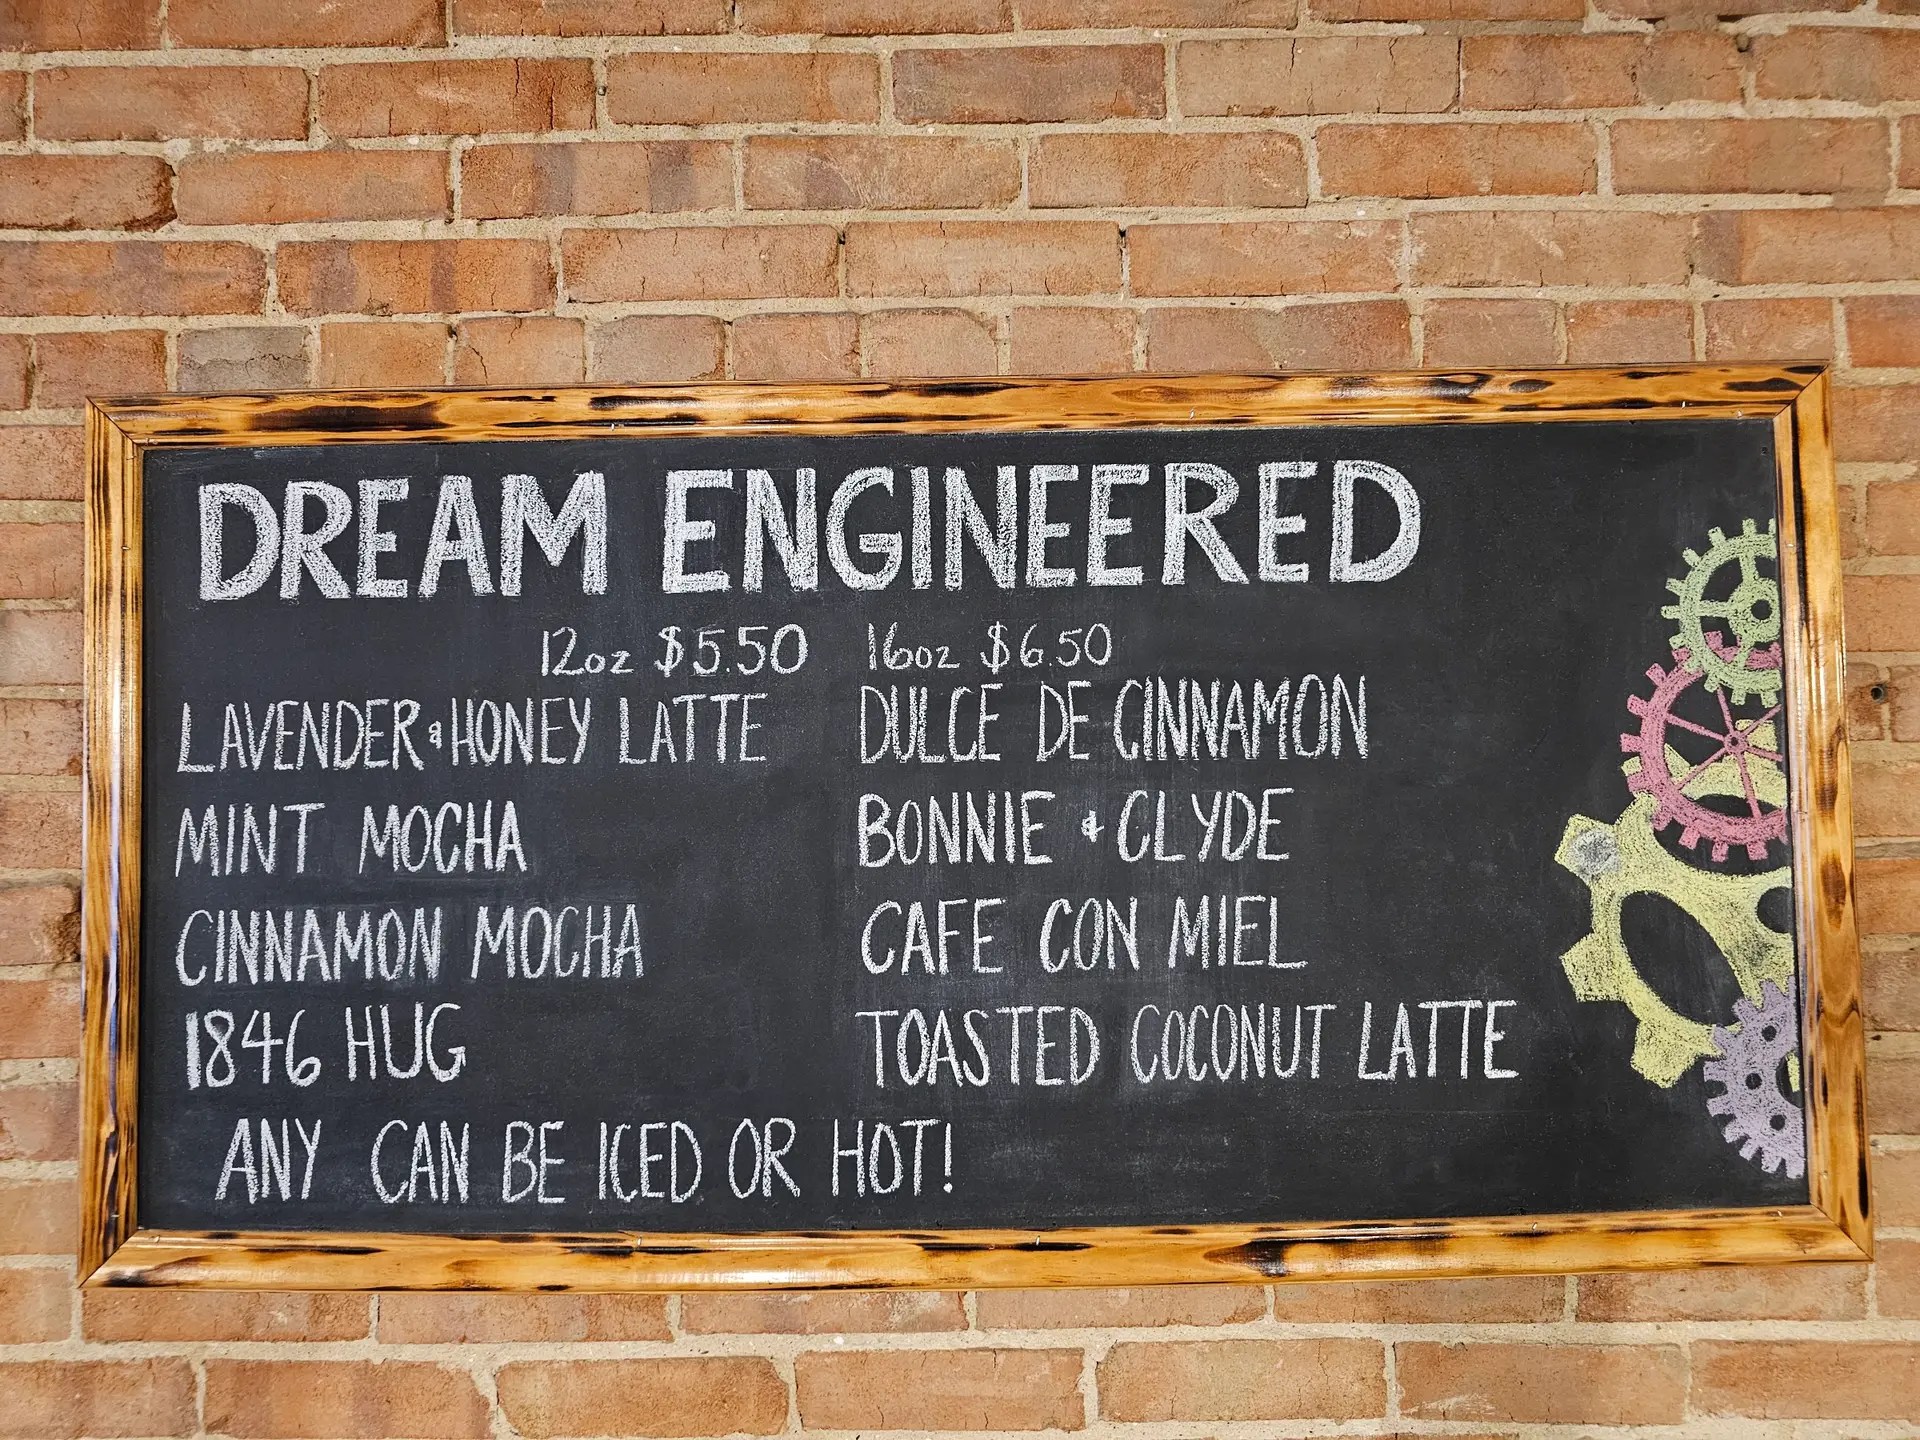 DREAM ENGINEERED
12oz $5.50 16oz $6.50
LAVENDER & HONEY LATTE
MINT MOCHA
CINNAMON MOCHA
1846 HUG
DULCE DE CINNAMON
BONNIE & CLYDE
CAFE CON MIEL
TOASTED COCONUT LATTE
ANY CAN BE ICED OR HOT!